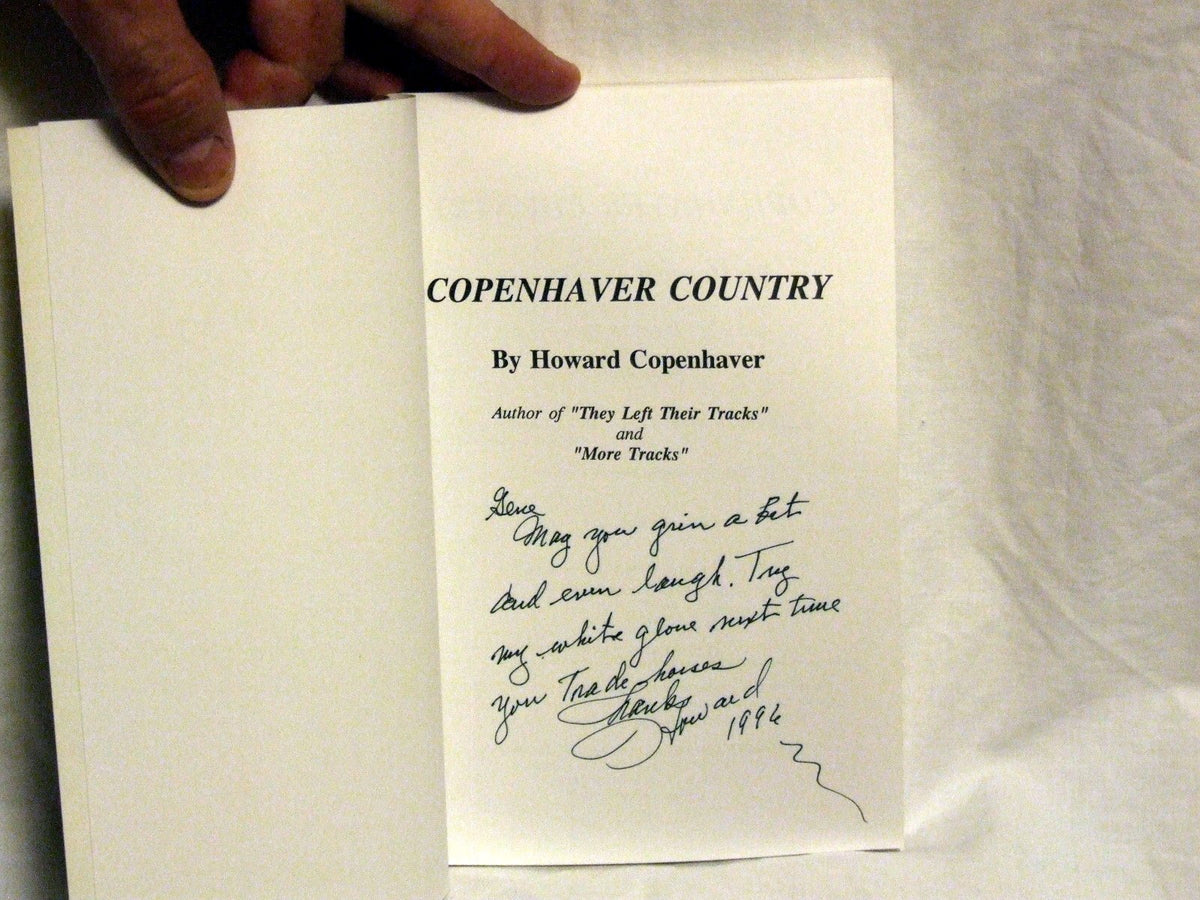 COPENHAVER COUNTRY
By Howard Copenhaver
Author of "They Left Their Tracks"
and
"More Tracks"
Gene
May you grin a Bit
and even laugh. Try
my white glove next time
you Trade horses
Thanks
Howard
1996